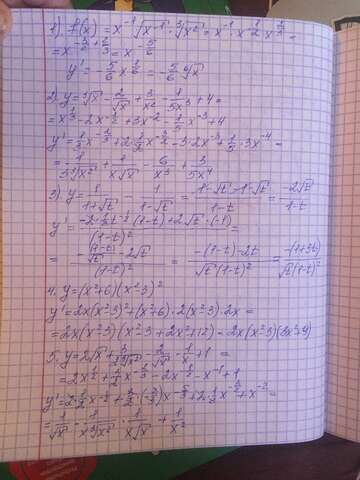 1). f(x) = x⁻¹√x⁻¹ · ³√x² = x⁻¹ · x⁻¹/² x²/³ =
= x^(-3/2 + 2/3) = x^(-5/6)
y' = -5/6 x^(1/6) = -5/6 ⁶√x
2) y = ³√x - 2/√x + 3/x² - 1/5x³ + 4 =
= x^(1/3) - 2x^(-1/2) + 3x⁻² - 1/5 x⁻³ + 4
y' = 1/3 x^(-2/3) + 2·1/2 x^(-3/2) - 3·2x⁻³ + 1/5·3x⁻⁴ =
= 1/(3 ³√x²) + 1/(x√x) - 6/x³ + 3/5x⁴
3) y = 1/(1+√t) - 1/(1-√t) = (1-√t-1-√t)/(1-t) = -2√t/(1-t)
y' = (-2·1/2 t^(-1/2) (1-t) + 2√t·(-1))/(1-t)² =
= (-(1-t)/√t - 2√t)/(1-t)² = (-(1-t)-2t)/(√t(1-t)²) = -(1+3t)/(√t(1-t)²)
4. y = (x²+6)(x²-3)²
y' = 2x(x²-3)² + (x²+6)·2(x²-3)·2x =
= 2x(x²-3)(x²-3+2x²+12) = 2x(x²-3)(3x²+9)
5. y = 2√x + - 2/√x - 1/x + 1 =
= 2x^(1/2) + x^(-2/3) - 2x^(-1/2) - x⁻¹ + 1
y' = 2·1/2 x^(-1/2) + ·(-2/3) x^(-5/3) + 2·1/2 x^(-3/2) + x⁻² =
= 1/√x - 1/(x ³√x²) + 1/(x√x) + 1/x²